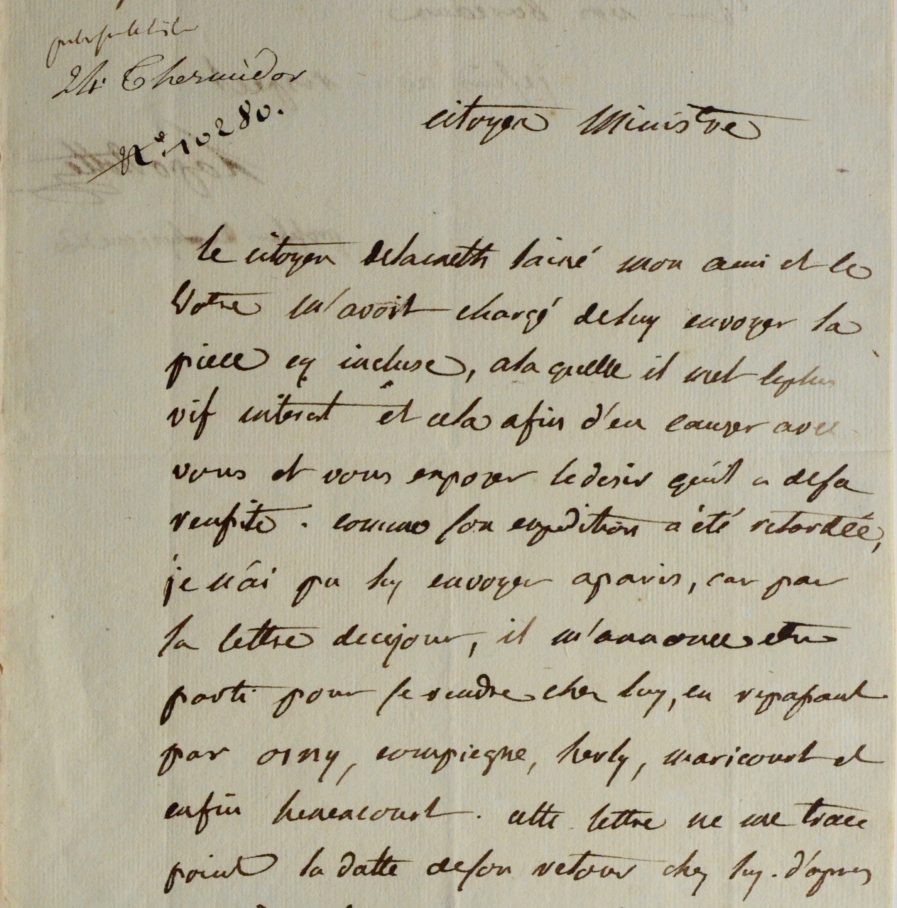 24 Thermidor
N.º 10280.
Citoyen Ministre
le citoyen delameth lainé mon ami et le
Votre m'avoit chargé de luy envoyer la
piece cy incluse, ala quelle il met leplus
vif interest et cela afin d'en causer avec
vous et vous exposer le desir qu'il a desa
reusite. comme son expedition a été retardée,
je n'ai pu luy envoyer aparis, car par
la lettre decejour, il m'annonce etre
parti pour se rendre chez luy, en repassant
par osny, compiegne, herly, maricourt et
enfin henencourt. cette lettre ne me trace
point la datte deson retour chez luy. d'apres